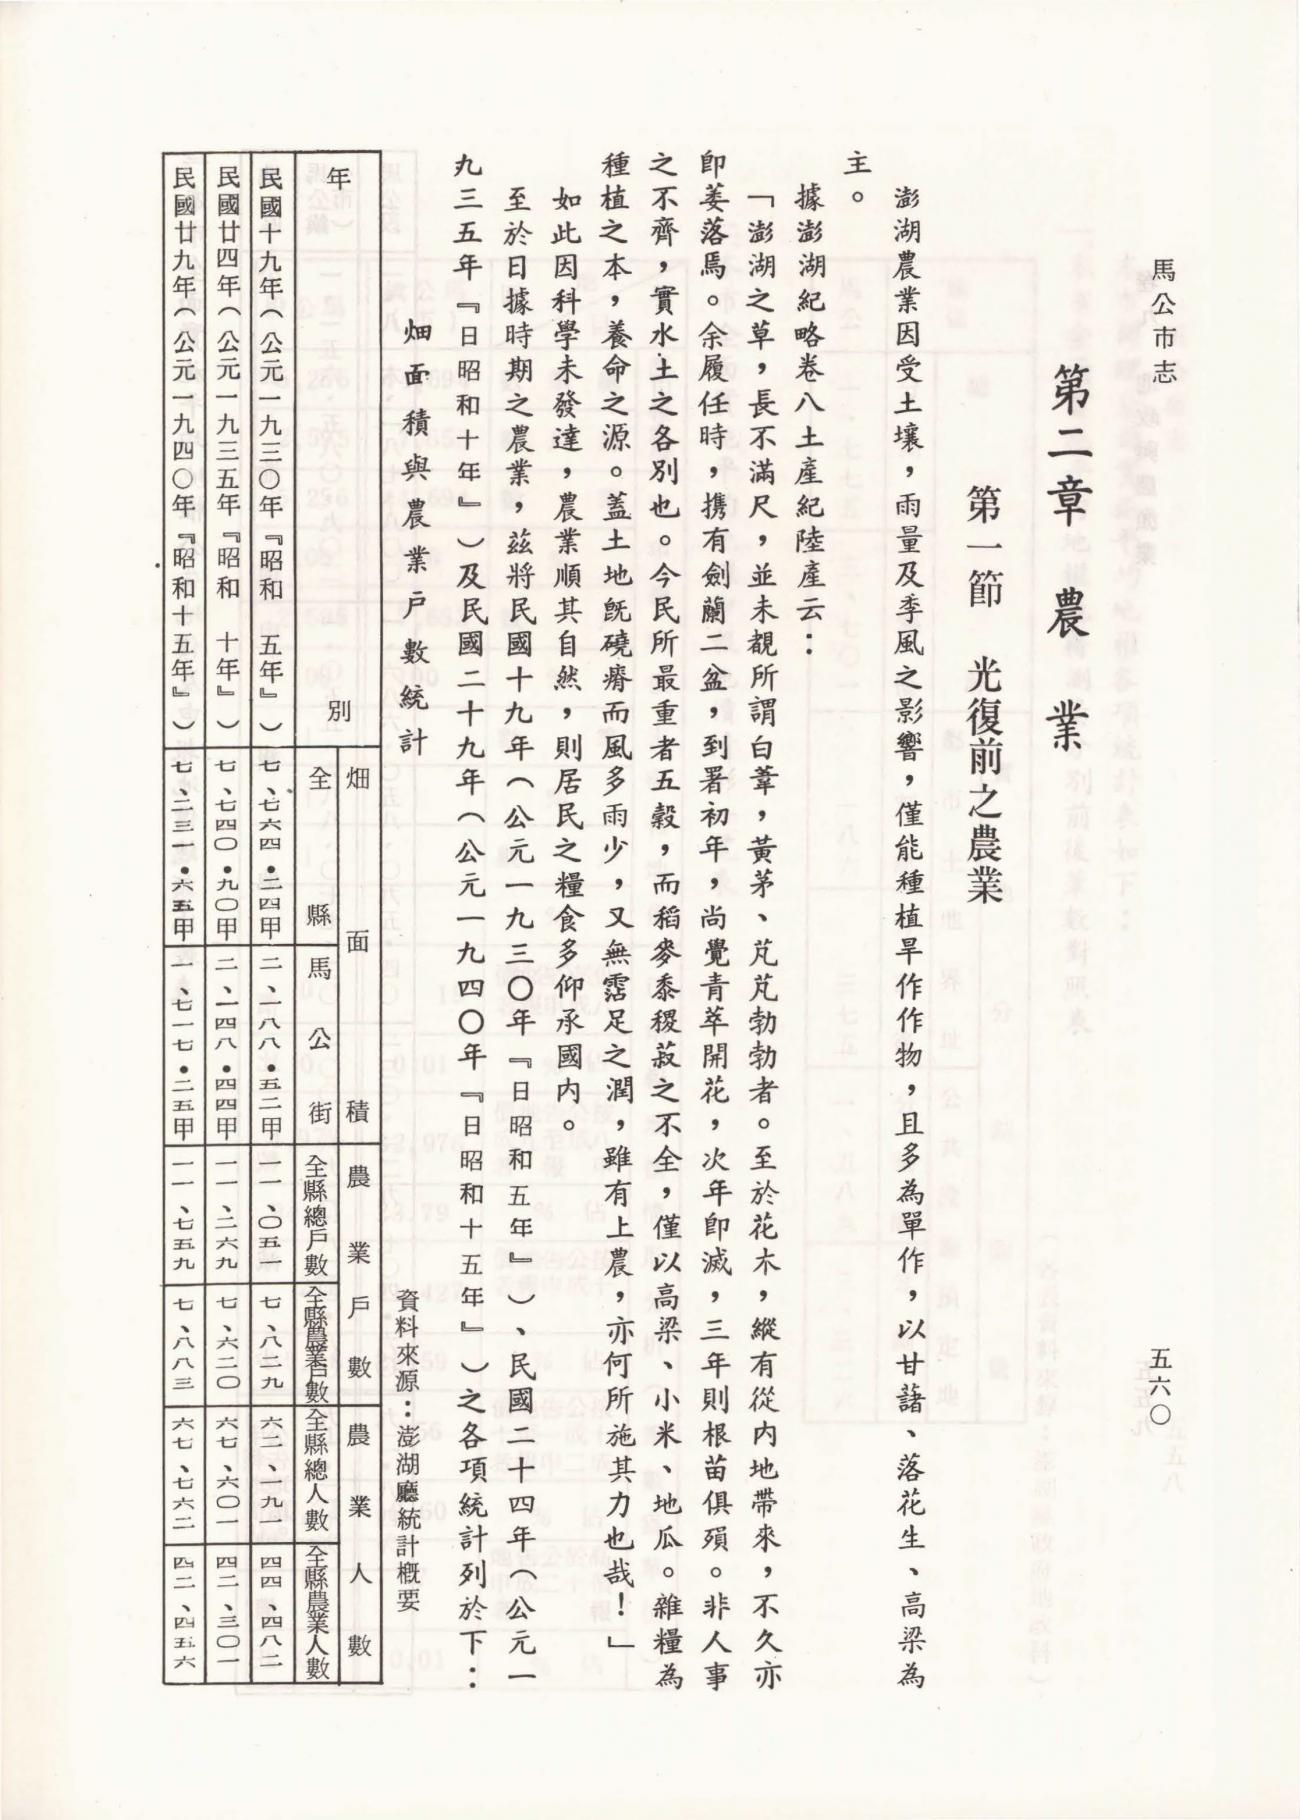 馬公市志
五六〇
第二章　農　業
第一節　光復前之農業
澎湖農業因受土壤，雨量及季風之影響，僅能種植旱作作物，且多為單作，以甘藷、落花生、高梁為
主。
據澎湖紀略卷八土產紀陸產云：
「澎湖之草，長不滿尺，並未覩所謂白葦，黃茅、芃芃勃勃者。至於花木，縱有從內地帶來，不久亦
即萎落馬。余履任時，携有劍蘭二盆，到署初年，尚覺青萃開花，次年即滅，三年則根苗俱殞。非人事
之不齊，實水土之各別也。今民所最重者五穀，而稻麥黍稷菽之不全，僅以高梁、小米、地瓜。雜糧為
種植之本，養命之源。蓋土地旣磽瘠而風多雨少，又無霑足之潤，雖有上農，亦何所施其力也哉！」
如此因科學未發達，農業順其自然，則居民之糧食多仰承國內。
至於日據時期之農業，茲將民國十九年（公元一九三〇年『日昭和五年』）、民國二十四年（公元一
九三五年『日昭和十年』）及民國二十九年（公元一九四〇年『日昭和十五年』）之各項統計列於下：
畑面積與農業戶數統計
資料來源：澎湖廳統計概要
年別　畑面積　農業戶數　農業人數
全縣　馬公街　全縣總戶數　全縣農業戶數　全縣總人數　全縣農業人數
民國十九年（公元一九三〇年『昭和　五年』）　七、七六四・二四甲　二、一八八・五二甲　一一、〇五一　七、八二九　六二、一九一　四四、四八二
民國廿四年（公元一九三五年『昭和　十年』）　七、七四〇・九〇甲　二、一四八・四四甲　一一、二六九　七、六二〇　六七、六〇一　四二、三〇一
民國廿九年（公元一九四〇年『昭和十五年』）　七、二三一・六五甲　一、七一七・二五甲　一一、七五九　七、八八三　六七、七六二　四二、四五六